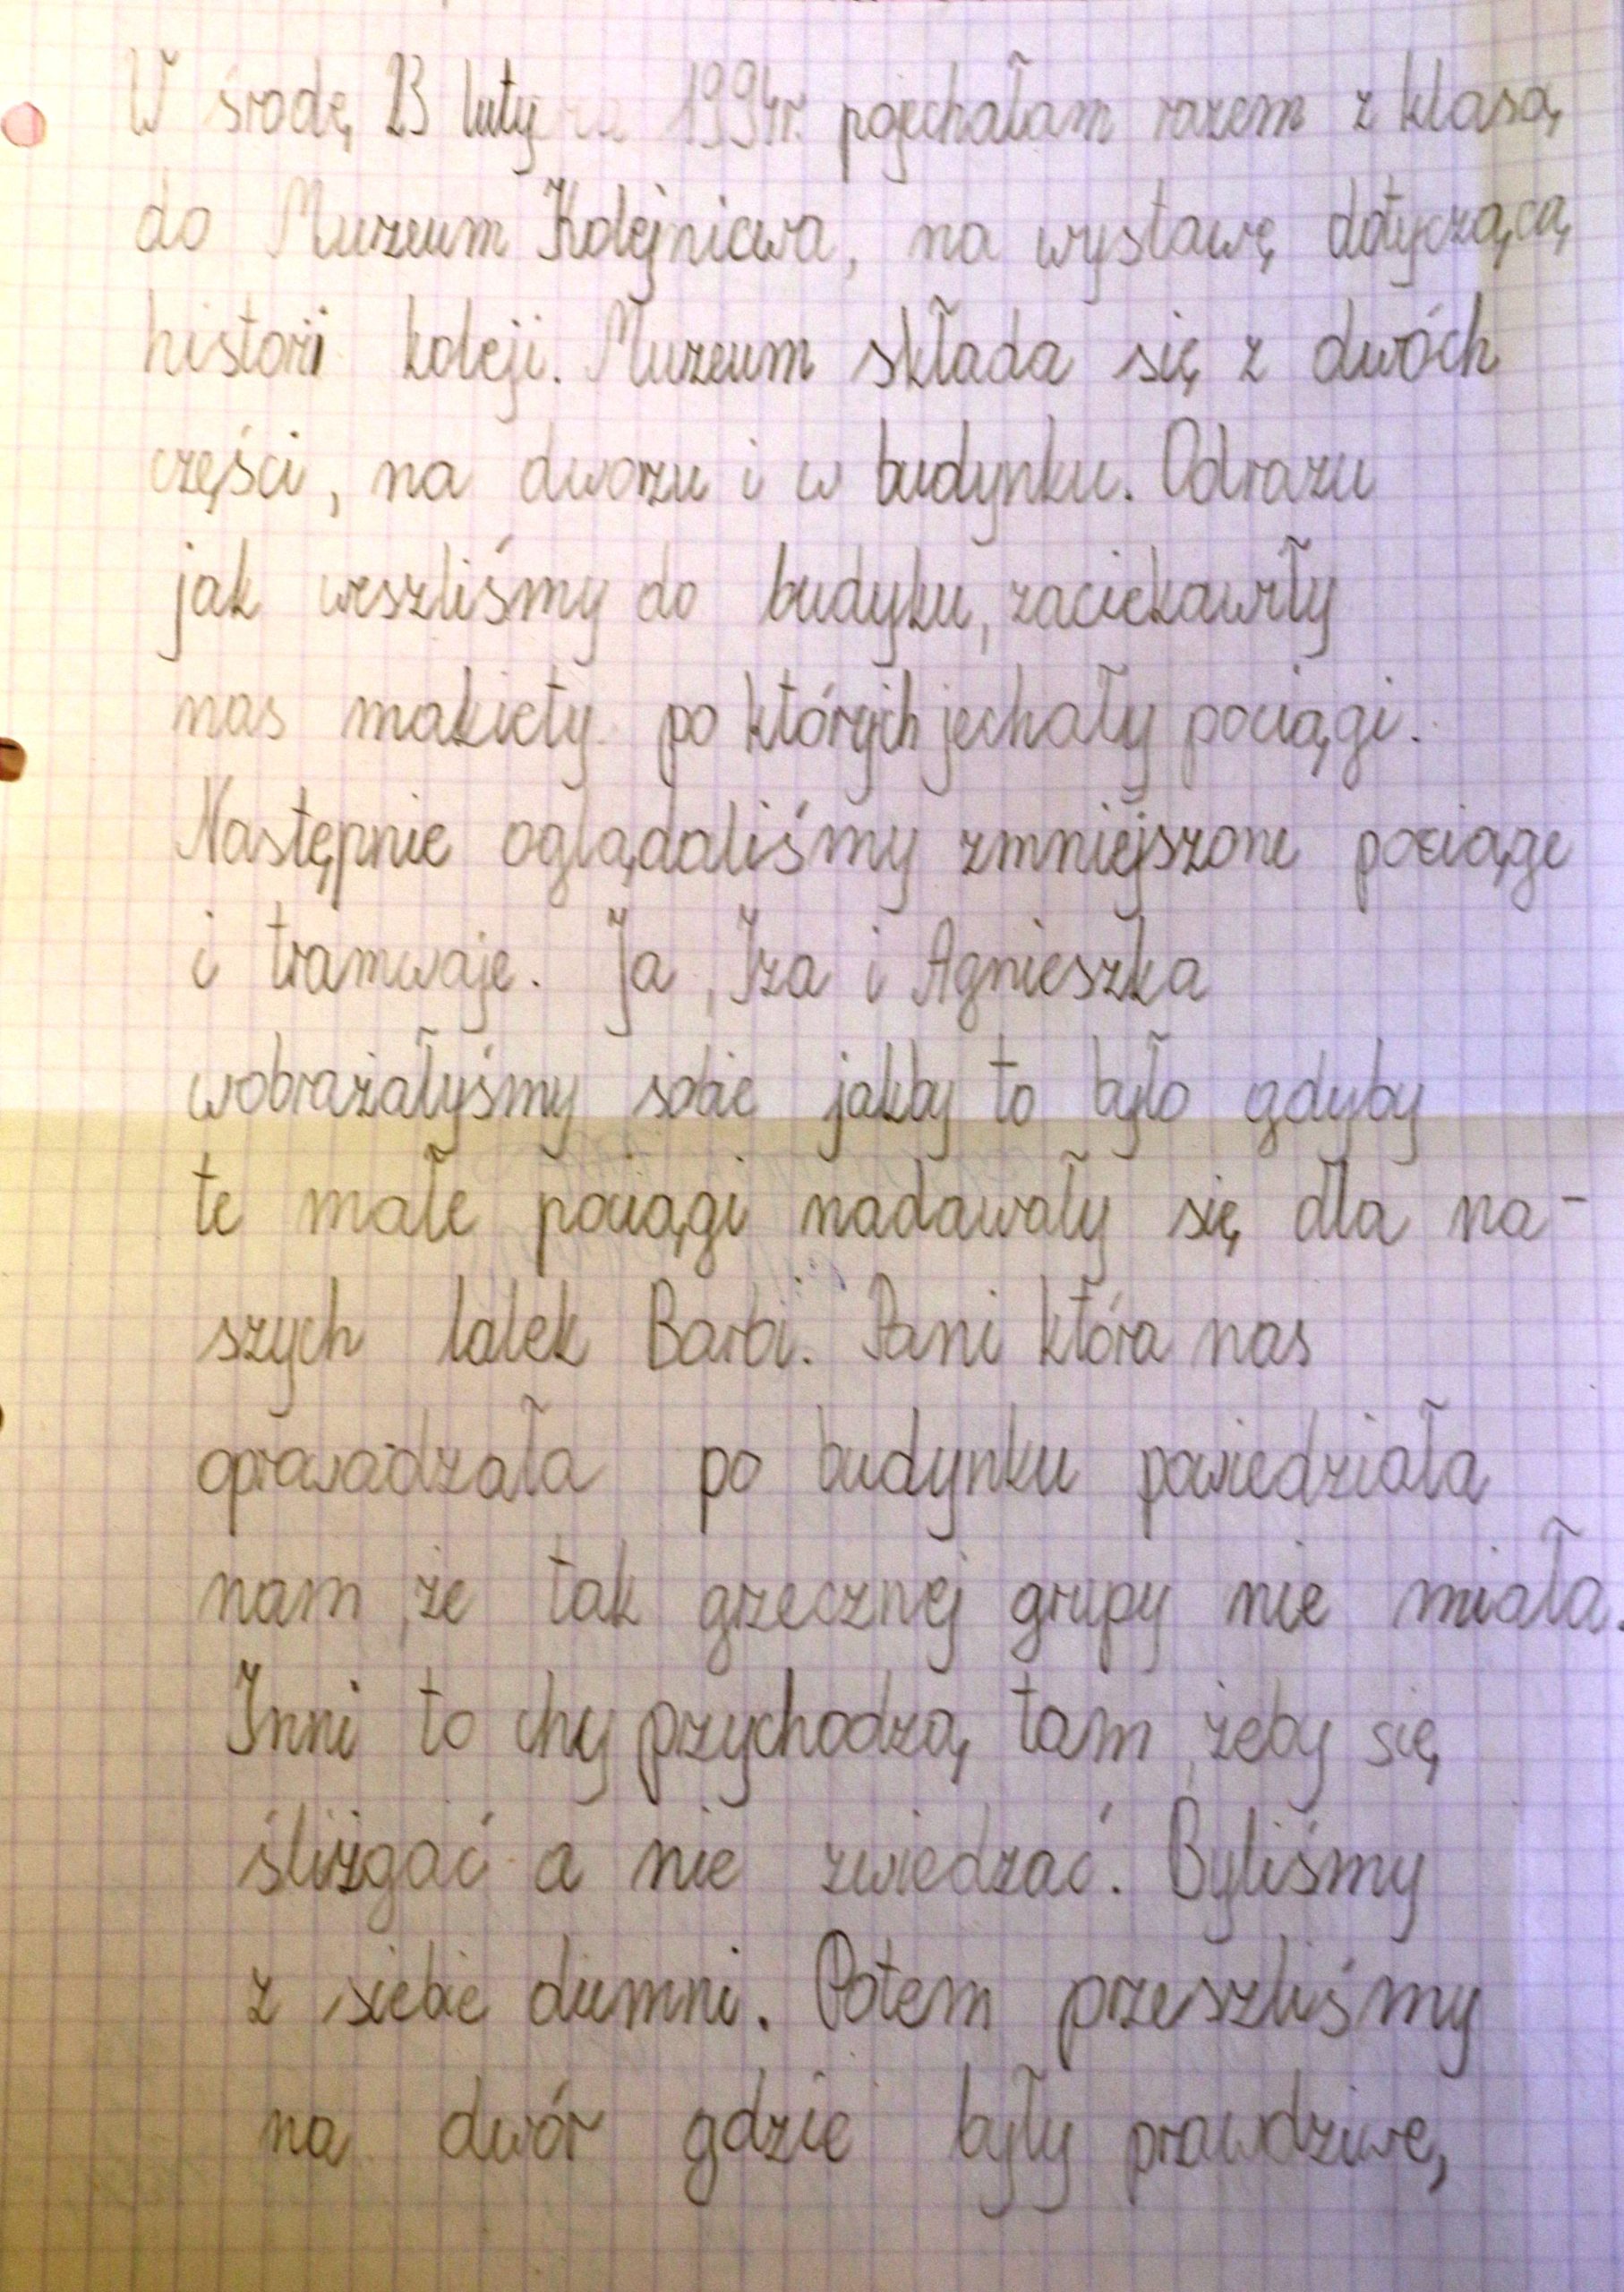 W środę 23 luty 1994r. pojechałam razem z klasą
do Muzeum Kolejnicwa, na wystawę dotyczącą
histori koleji. Muzeum składa się z dwóch
części, na dworzu i w budynku. Odrazu
jak weszliśmy do budyku, zaciekawiły
nas makiety po których jechały pociągi.
Następnie oglądaliśmy zmniejszone pociąge
i tramwaje. Ja, Iza i Agnieszka
wobrażałyśmy sobie jakby to było gdyby
te małe pociągi nadawały się dla na-
szych lalek Barbi. Pani która nas
oprawadzała po budynku powiedziała
nam, że tak grzecznej grupy nie miała.
Inni to chy przychodzą tam, żeby się
śliżgać a nie zwiedzać. Byliśmy
z siebie dumni. Potem przeszliśmy
na dwór gdzie były prawdziwe,